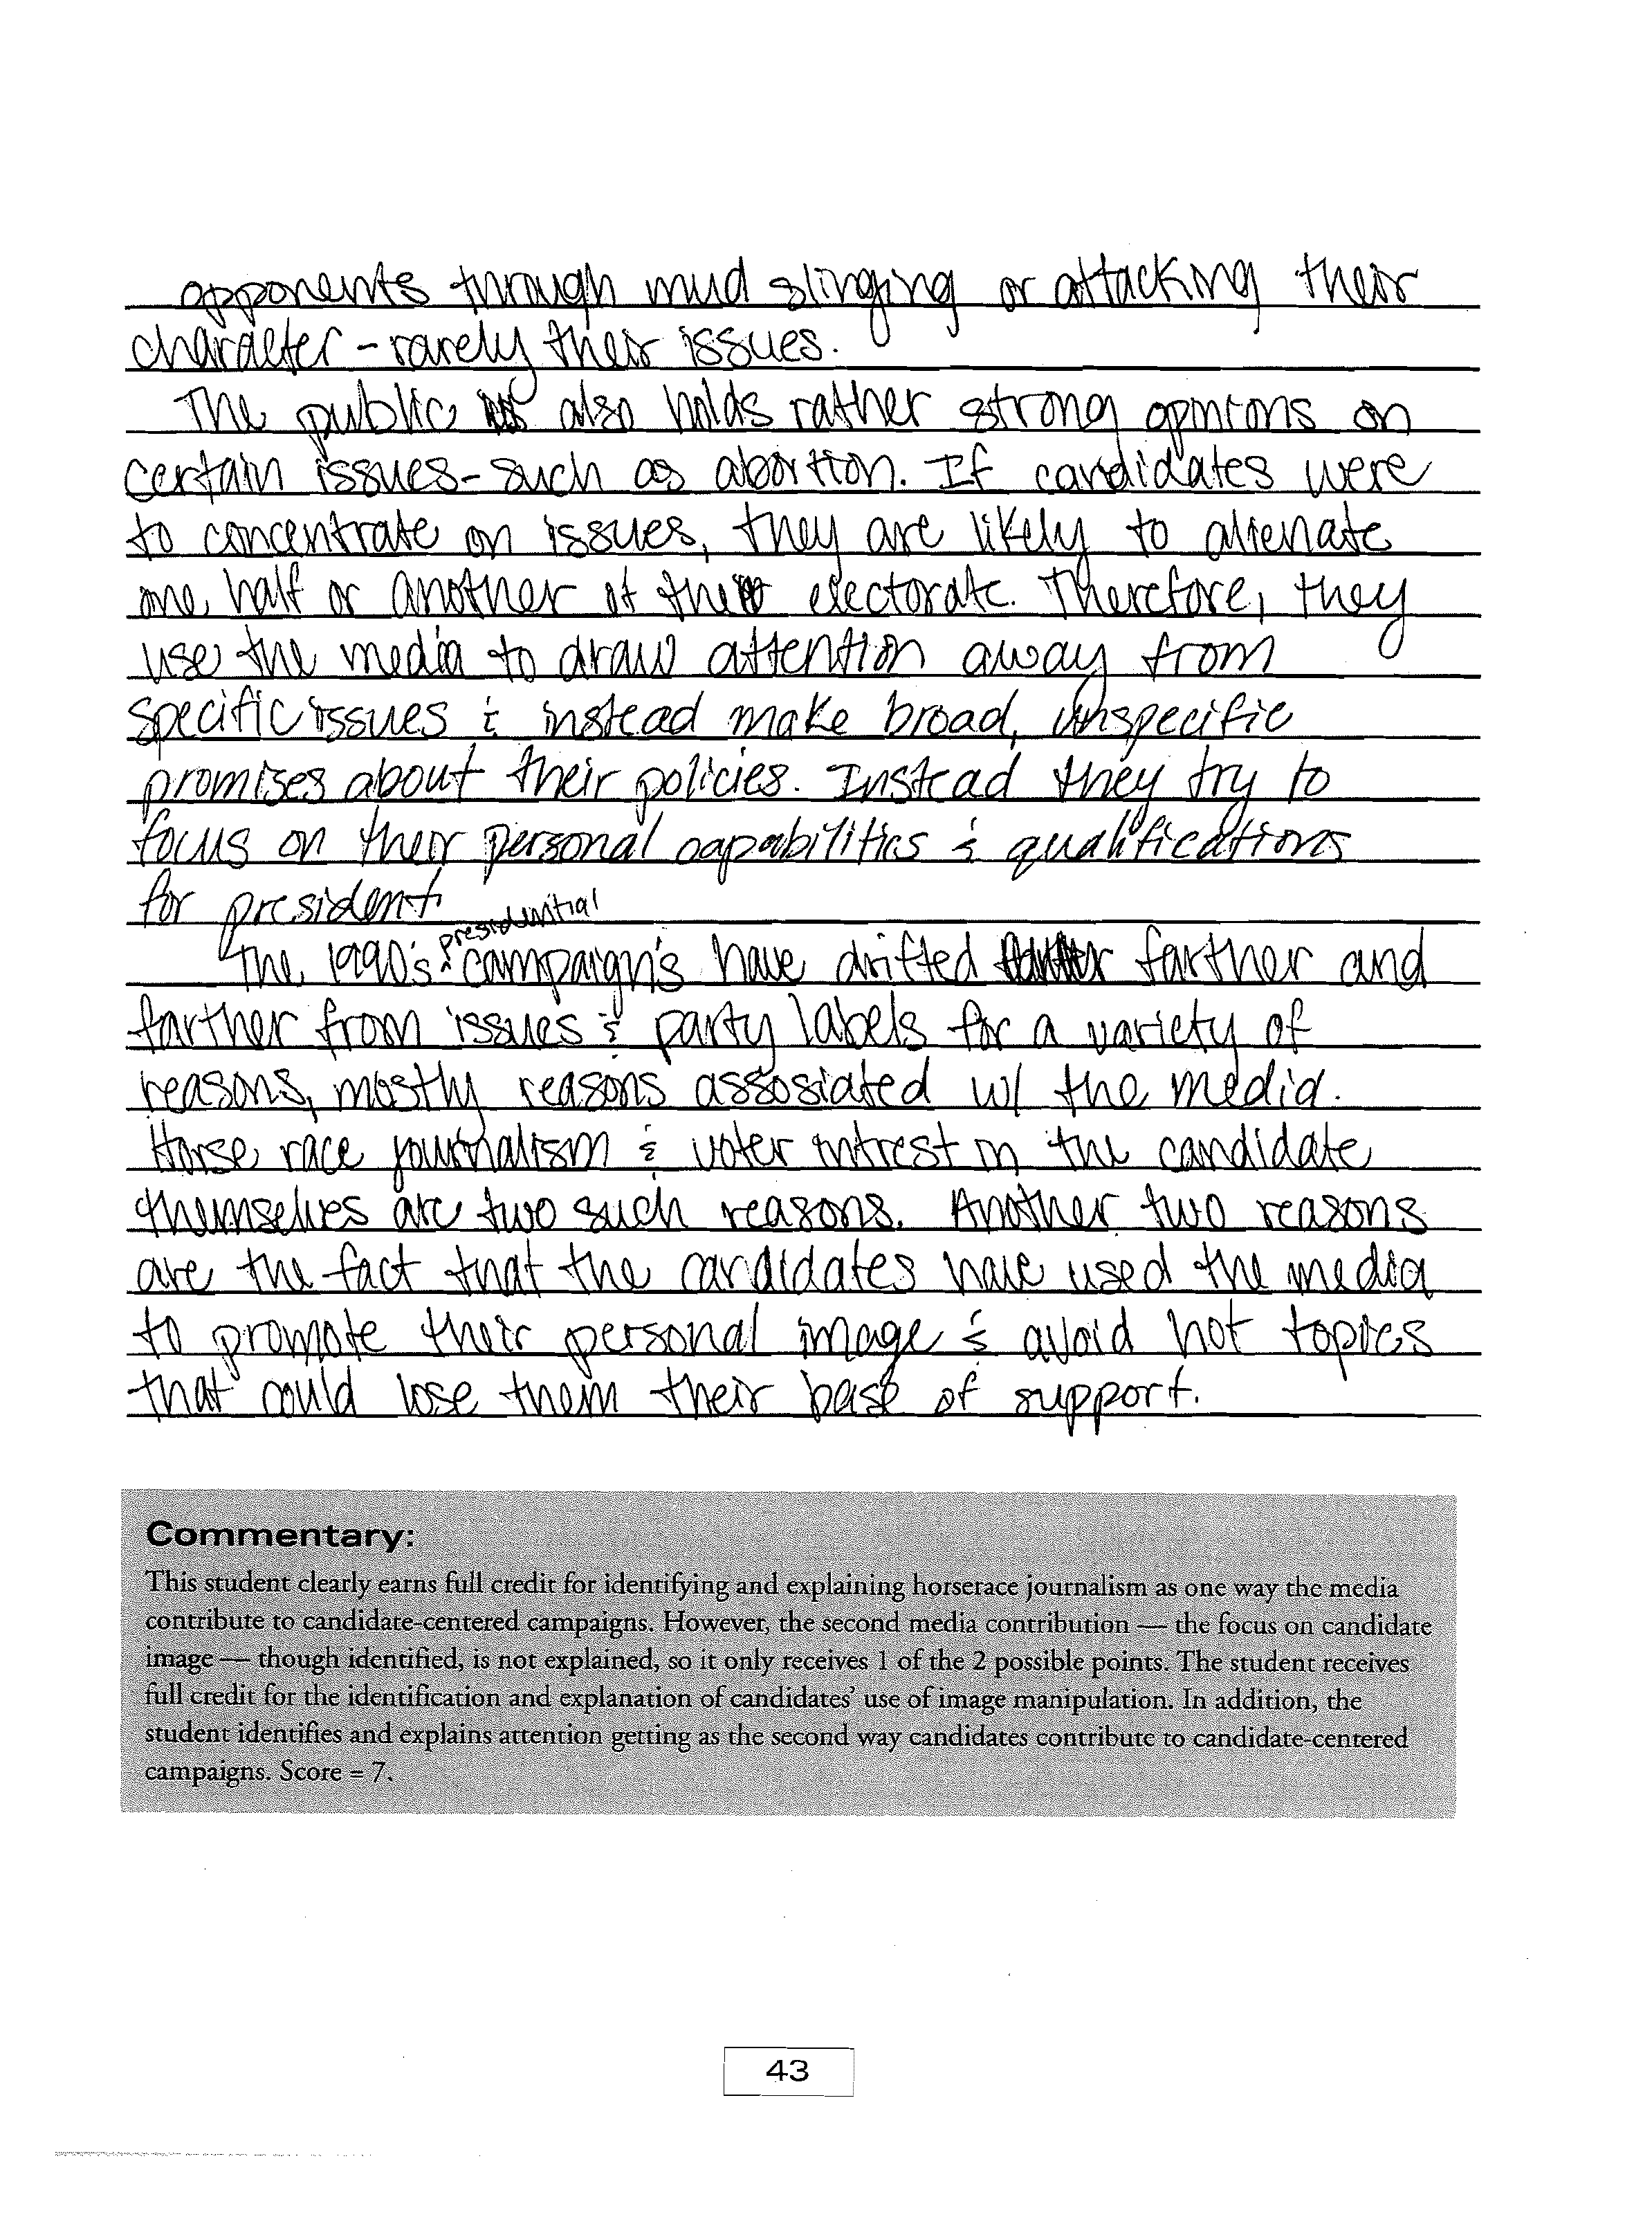 opponents through mud slinging or attacking their
character - rarely their issues.
The public also holds rather strong opinions on
certain issues - such as abortion. If candidates were
to concentrate on issues, they are likely to alienate
one half or another of the electorate. Therefore, they
use the media to draw attention away from
specific issues & instead make broad, unspecific
promises about their policies. Instead they try to
focus on their personal capabilities & qualifications
for president.
presidential
The 1990's campaign's have drifted farther and
farther from issues & party labels for a variety of
reasons, mostly reasons assosiated w/ the media.
Horse race journalism & voter intrest in the candidate
themselves are two such reasons. Another two reasons
are the fact that the candidates have used the media
to promote their personal image & avoid hot topics
that could lose them their base of support.
Commentary:
This student clearly earns full credit for identifying and explaining horserace journalism as one way the media
contribute to candidate-centered campaigns. However, the second media contribution — the focus on candidate
image — though identified, is not explained, so it only receives 1 of the 2 possible points. The student receives
full credit for the identification and explanation of candidates' use of image manipulation. In addition, the
student identifies and explains attention getting as the second way candidates contribute to candidate-centered
campaigns. Score = 7.
43